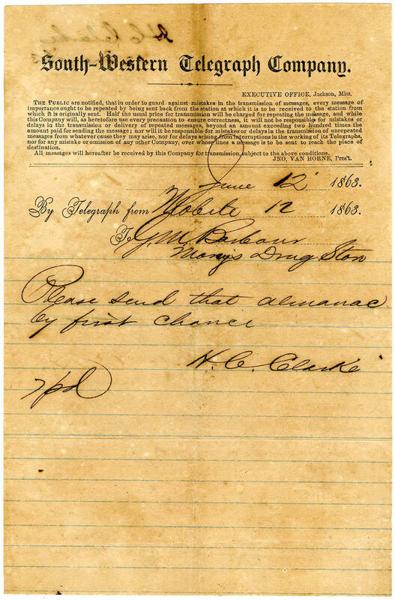 H. C. Clarke
South-Western Telegraph Company.
EXECUTIVE OFFICE, Jackson, Miss.
THE PUBLIC are notified, that in order to guard against mistakes in the transmission of messages, every message of
importance ought to be repeated by being sent back from the station at which it is to be received to the station from
which it is originally sent. Half the usual price for transmission will be charged for repeating the message, and while
this Company will, as heretofore use every precaution to ensure correctness, it will not be responsible for mistakes or
delays in the transmission or delivery of repeated messages, beyond an amount exceeding two hundred times the
amount paid for sending the message; nor will it be responsible for mistakes or delays in the transmission of unrepeated
messages from whatever cause they may arise, nor for delays arising from interruptions in the working of its Telegraphs,
nor for any mistake or omission of any other Company, over whose lines a message is to be sent to reach the place of
destination.
All messages will hereafter be received by this Company for transmission, subject to the above conditions.
JNO. VAN HORNE, Pres't.
June 12 1863.
By Telegraph from Mobile 12 1863.
To G. M. Barbour
Drug Stor
Please send that almanac
by first chance
H. C. Clarke
7pd